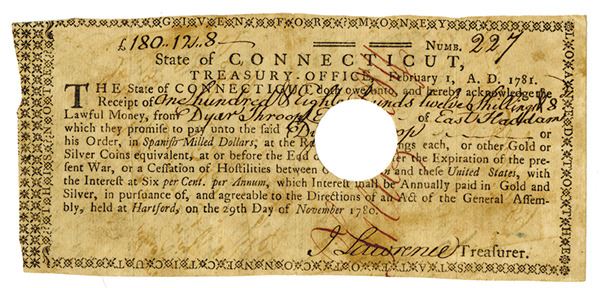 GIVEN FOR MONEY
£180.12s.8 NUMB. 227
State of CONNECTICUT,
TREASURY-OFFICE, February 1, A. D. 1781.
THE State of CONNECTICUT, doth owe unto, and hereby acknowledge the
Receipt of One hundred & Eighty Pounds twelve Shillings & 8
Lawful Money, from Dyar Throop of East Haddam
which they promise to pay unto the said or
his Order, in Spanish Milled Dollars, at the ings each, or other Gold or
Silver Coins equivalent, at or before the End after the Expiration of the pre-
sent War, or a Cessation of Hostilities between and these United States, with
the Interest at Six per Cent. per Annum, which Interest shall be Annually paid in Gold and
Silver, in pursuance of, and agreeable to the Directions of an Act of the General Assem-
bly, held at Hartford, on the 29th Day of November 1780.
J Lawrence Treasurer.